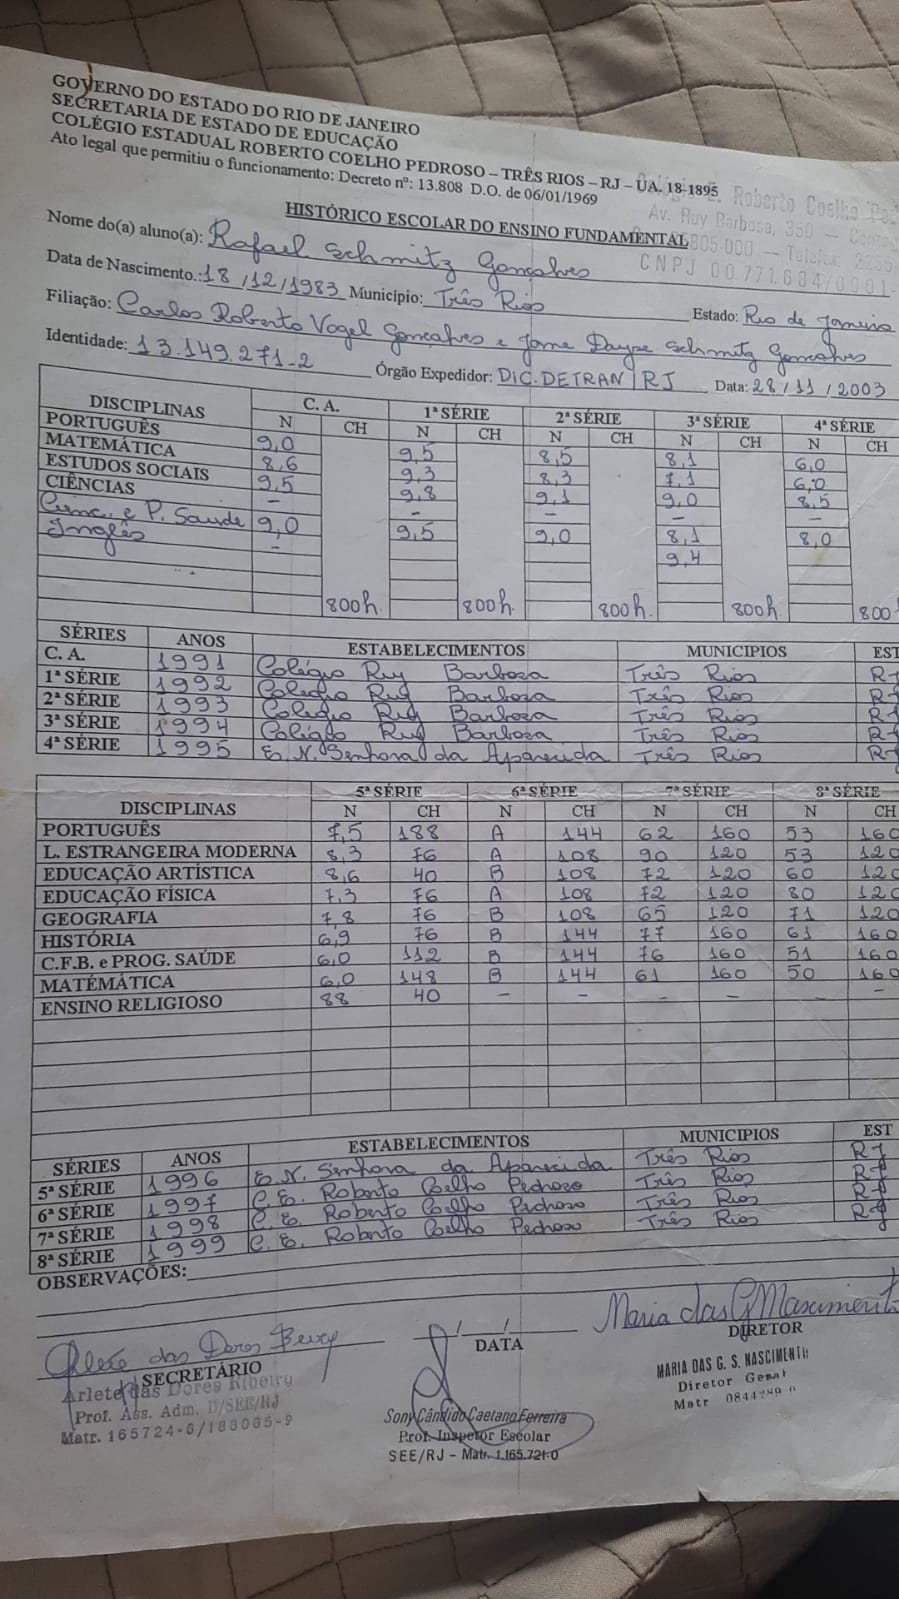 GOVERNO DO ESTADO DO RIO DE JANEIRO
SECRETARIA DE ESTADO DE EDUCAÇÃO
COLÉGIO ESTADUAL ROBERTO COELHO PEDROSO – TRÊS RIOS – RJ – UA. 18-1895
Ato legal que permitiu o funcionamento: Decreto nº: 13.808 D.O. de 06/01/1969
E. Roberto Coelho
Av. Ruy Barbosa, 350 –
805-000 – Telefax:
CNPJ 00.771.684/0001-
HISTÓRICO ESCOLAR DO ENSINO FUNDAMENTAL
Nome do(a) aluno(a): Rafael Schmitz Gonçalves
Data de Nascimento.: 18/12/1983 Município: Três Rios Estado: Rio de Janeiro
Filiação: Carlos Roberto Vogel Gonçalves e Jane Dayse Schmitz Gonçalves
Identidade: 13.149.271-2 Órgão Expedidor: DIC.DETRAN/RJ Data: 28/11/2003
DISCIPLINAS C. A. 1ª SÉRIE 2ª SÉRIE 3ª SÉRIE 4ª SÉRIE
N CH N CH N CH N CH N CH
PORTUGUÊS 9,0 9,5 8,5 8,1 6,0
MATEMÁTICA 8,6 9,3 8,3 7,1 6,0
ESTUDOS SOCIAIS 9,5 9,8 9,1 9,0 8,5
CIÊNCIAS – – – – –
Cienc. e P. Saúde 9,0 9,5 9,0 8,1 8,0
Inglês – 9,4
800h. 800h. 800h. 800h. 800
SÉRIES ANOS ESTABELECIMENTOS MUNICIPIOS EST
C. A. 1991 Colégio Ruy Barbosa Três Rios RJ
1ª SÉRIE 1992 Colégio Ruy Barbosa Três Rios RJ
2ª SÉRIE 1993 Colégio Ruy Barbosa Três Rios RJ
3ª SÉRIE 1994 Colégio Ruy Barbosa Três Rios RJ
4ª SÉRIE 1995 E. N. Senhora da Aparecida Três Rios RJ
DISCIPLINAS 5ª SÉRIE 6ª SÉRIE 7ª SÉRIE 8ª SÉRIE
N CH N CH N CH N CH
PORTUGUÊS 7,5 188 A 144 62 160 53 160
L. ESTRANGEIRA MODERNA 8,3 76 A 108 90 120 53 120
EDUCAÇÃO ARTÍSTICA 8,6 40 B 108 72 120 60 120
EDUCAÇÃO FÍSICA 7,3 76 A 108 72 120 80 120
GEOGRAFIA 7,8 76 B 108 65 120 71 120
HISTÓRIA 6,9 76 B 144 77 160 61 160
C.F.B. e PROG. SAÚDE 6,0 112 B 144 76 160 51 160
MATÉMÁTICA 6,0 148 B 144 61 160 50 160
ENSINO RELIGIOSO 88 40 – – – – –
SÉRIES ANOS ESTABELECIMENTOS MUNICIPIOS EST
5ª SÉRIE 1996 E. N. Senhora da Aparecida Três Rios RJ
6ª SÉRIE 1997 C. E. Roberto Coelho Pedroso Três Rios RJ
7ª SÉRIE 1998 C. E. Roberto Coelho Pedroso Três Rios RJ
8ª SÉRIE 1999 C. E. Roberto Coelho Pedroso Três Rios RJ
OBSERVAÇÕES:
das Dores Maria das G Nascimento
SECRETÁRIO DATA DIRETOR
Arlete das Dores Ribeiro
Prof. Ass. Adm. D/SEE/RJ
Matr. 165724-6/188065-9
Sony Cândido Caetano Ferreira
Prof. Inspetor Escolar
SEE/RJ – Matr. 1.165.721-0
MARIA DAS G. S. NASCIMENTO
Diretor Geral
Matr 0844289